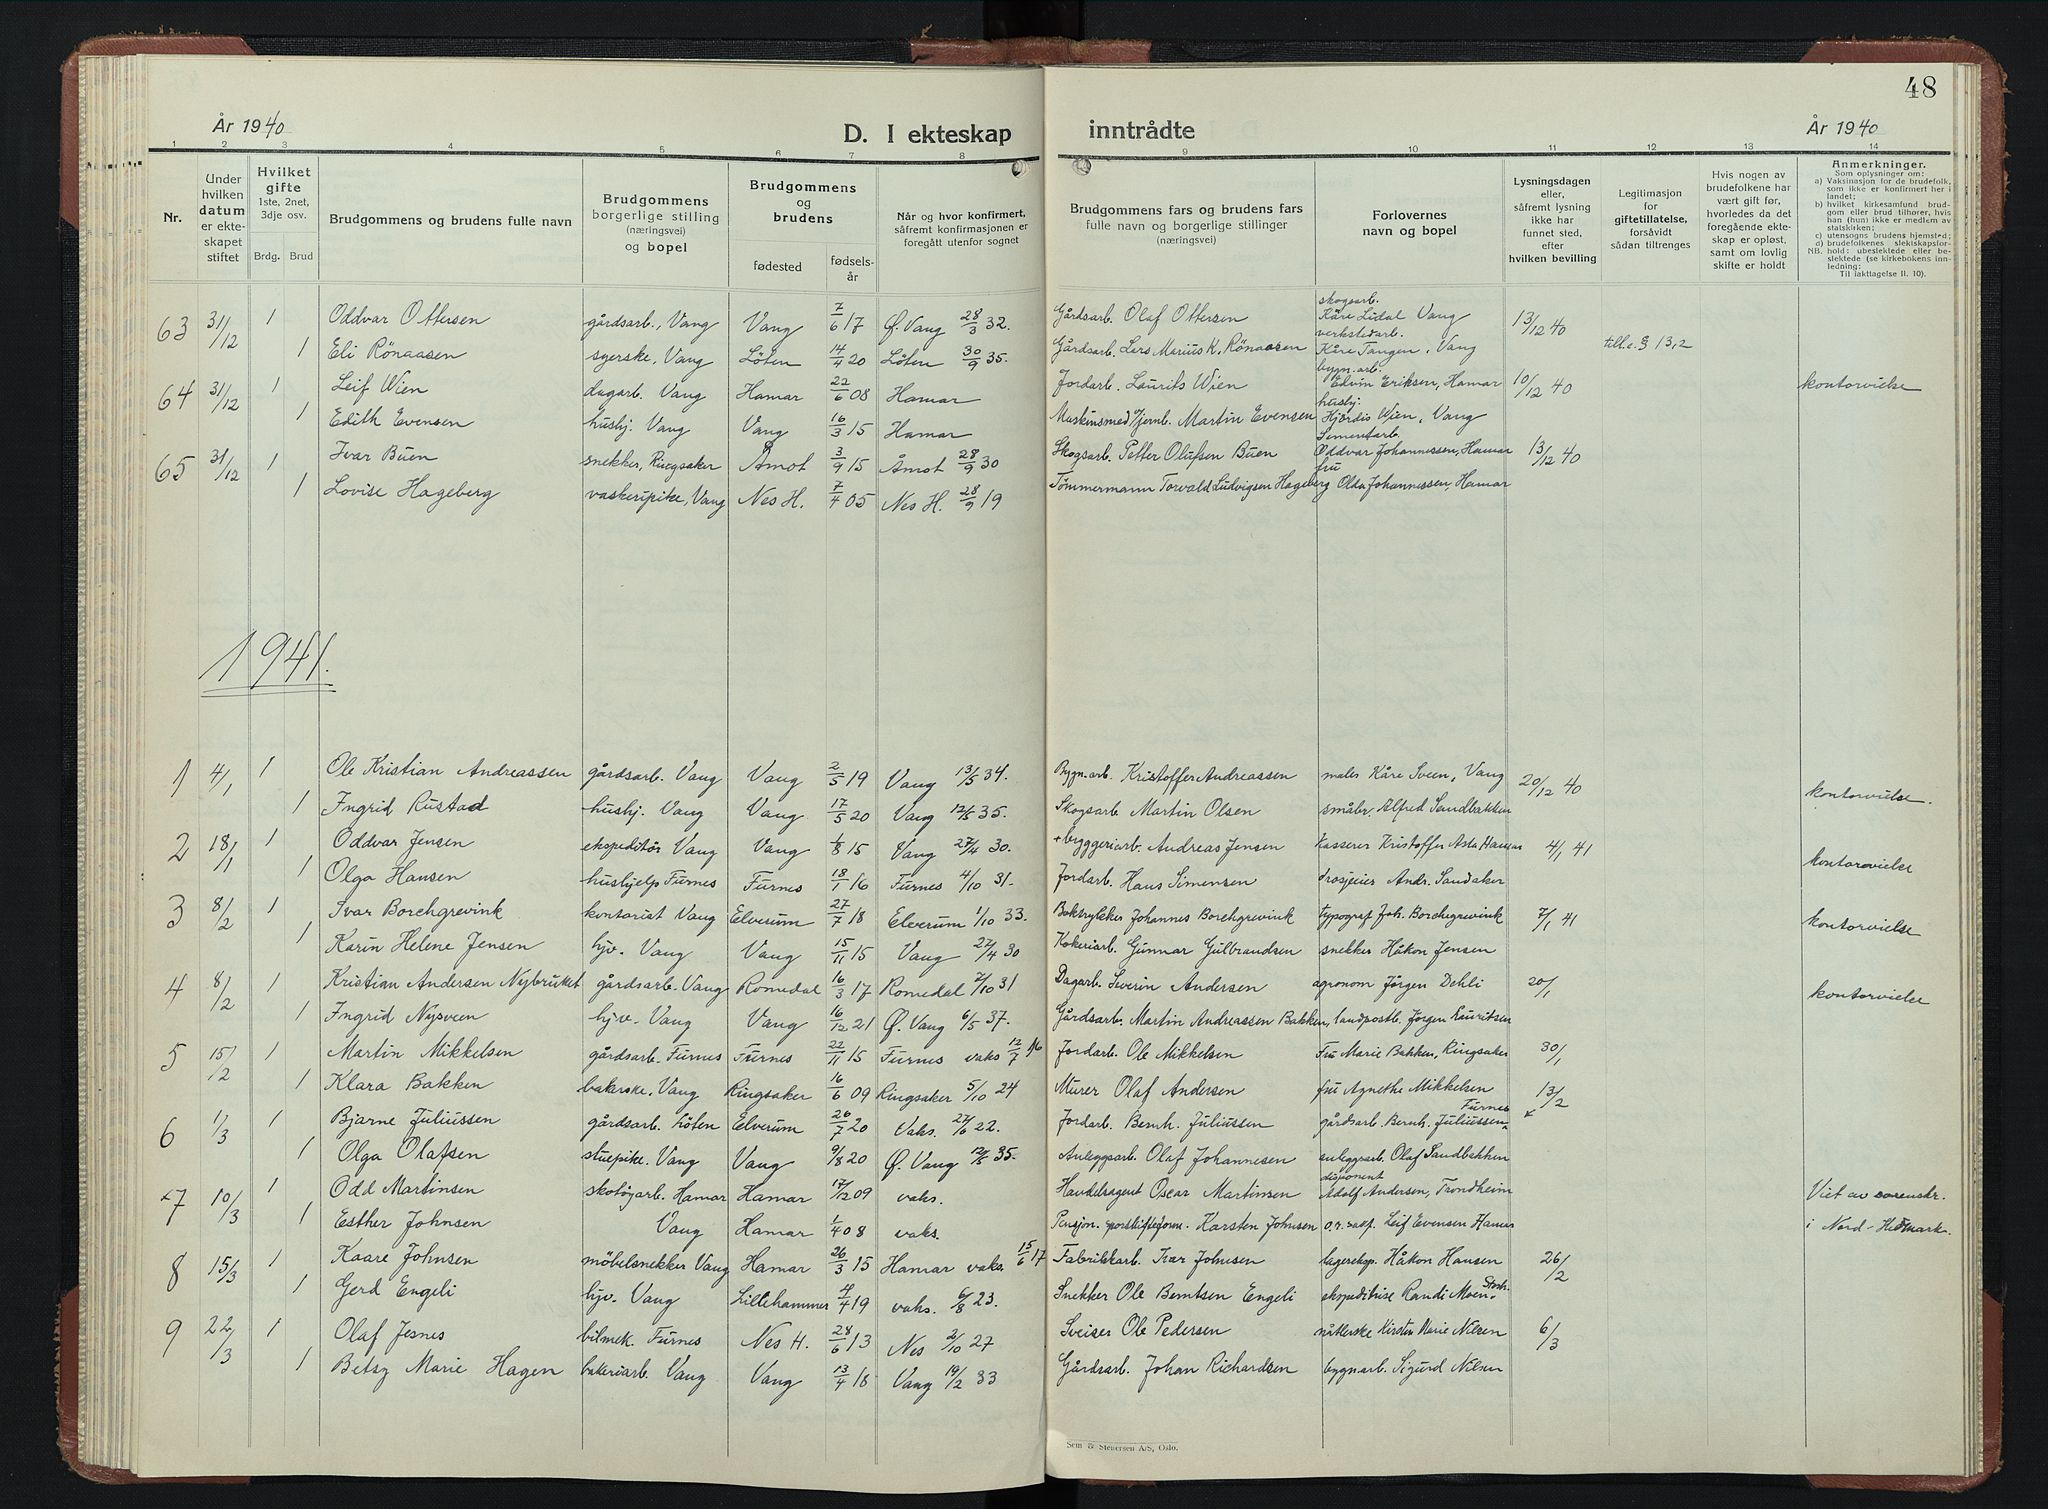 År 1940
D. I ekteskap
inntrådte
År 1940
48
1 2 3 4 5 6 7 8 9 10 11 12 13 14
Nr.
Under hvilken datum er ekteskapet stiftet
Hvilket gifte 1ste, 2net, 3dje osv.
Brdg. Brud
Brudgommens og brudens fulle navn
Brudgommens og brudens borgerlige stilling (næringsvei) og bopel
Brudgommens og brudens
fødested
fødsels-år
Når og hvor konfirmert, såfremt konfirmasjonen er foregått utenfor sognet
Brudgommens fars og brudens fars fulle navn og borgerlige stillinger (næringsvei)
Forlovernes navn og bopel
Lysningsdagen eller, såfremt lysning ikke har funnet sted, efter hvilken bevilling
Legitimasjon for giftetillatelse, forsåvidt sådan tiltrenges
Hvis nogen av brudefolkene har vært gift før, hvorledes da det foregående ekteskap er opløst, samt om lovlig skifte er holdt
Anmerkninger.
Som oplysninger om:
a) Vaksinasjon for de brudefolk, som ikke er konfirmert her i landet;
b) hvilket kirkesamfund brudgom eller brud tilhører, hvis han (hun) ikke er medlem av statskirken;
c) utensogns brudens hjemsted;
d) brudefolkenes slektskapsforhold: ubeslektede eller beslektede (se kirkebokens innledning:
NB.
Til iakttagelse II. 10).
63 31/12 1 Oddvar Ottersen gårdsarb., Vang Vang 7/6 17 Ø. Vang 28/3 32. Gårdsarb. Olaf Ottersen skogsarb. Kåre Lidal Vang 13/12 40
1 Eli Rönaasen syerske, Vang Löten 14/4 20 Löten 30/9 35. Gårdsarb. Lars Marius K. Rönaasen verkstedarb. Kåre Tangen, Vang till. e. § 13,2
64 31/12 1 Leif Wien dagarb. Vang Hamar 22/6 08 Hamar Jordarb. Laurits Wien bygn.arb. Edvin Eriksen, Hamar 10/12 40 kontorvielse
1 Edith Evensen hushj. Vang Vang 16/3 15 Hamar Maskinsmed v/jernb. Martin Evensen hushj. Hjördis Wien, Vang
65 31/12 1 Ivar Buen snekker, Ringsaker Åmot 3/9 15 Åmot 28/9 30 Skogsarb. Petter Olufsen Buen Sementarb. Oddvar Johannessen, Hamar 13/12 40
1 Lovise Hageberg vaskeripike, Vang Nes H. 7/4 05 Nes H. 28/9 19 Tömmermann Torvald Ludvigsen Hageberg fru Olda Johannessen, Hamar
1941.
1 4/1 1 Ole Kristian Andreassen gårdsarb. Vang Vang 2/5 19 Vang 13/5 34. Bygn.arb. Kristoffer Andreassen maler Kåre Sveen, Vang 20/12 40 kontorvielse.
1 Ingrid Rustad hushj. Vang Vang 17/5 20 Vang 12/5 35. Skogsarb. Martin Olsen småbr. Alfred Sandbakken
2 18/1 1 Oddvar Jensen ekspeditör Vang Vang 1/8 15 Vang 27/4 30. + byggeriarb. Andreas Jensen kasserer Kristoffer Asta Hamar 4/1 41 kontorvielse
1 Olga Hansen hushjelp Furnes Furnes 18/1 16 Furnes 4/10 31. Jordarb. Hans Simensen drosjeeier Andr. Sandaker
3 8/2 1 Ivar Borchgrevink kontorist Vang Elverum 27/7 18 Elverum 1/10 33. Boktrykker Johannes Borchgrevink typograf Joh. Borchgrevink 7/1 41 kontorvielse
1 Karin Helene Jensen hjv. Vang Vang 15/11 15 Vang 27/4 30 Kokeriarb. Gunnar Gulbrandsen snekker Håkon Jensen
4 8/2 1 Kristian Andersen Nybruket gårdsarb. Vang Romedal 16/3 17 Romedal 7/10 31 Dagarb. Severin Andersen agronom Jörgen Dehli 20/1 kontorvielse
1 Ingrid Nysveen hjv. Vang Vang 16/12 21 Ø. Vang 6/5 37. Gårdsarb. Martin Andreassen Bakken, landpostb. Jörgen Lauritsen
5 15/2 1 Martin Mikkelsen gårdsarb. Furnes Furnes 22/11 15 Furnes vaks 12/7 16 Jordarb. Ole Mikkelsen Fru Marie Bakken, Ringsaker 30/1
1 Klara Bakken bakerske, Vang Ringsaker 16/6 09 Ringsaker 5/10 24 Murer Olaf Andersen fru Agnethe Mikkelsen Furnes
6 1/3 1 Bjarne Juliussen gårdsarb. Löten Elverum 26/7 20 Vaks. 27/6 22. Jordarb. Bernh. Juliussen gårdsarb. Bernh. Juliussen 13/2
1 Olga Olafsen stuepike. Vang Vang 9/8 20 Ø. Vang 12/5 35. Anleggsarb. Olaf Johannesen anleggsarb. Olaf Sandbakken
7 10/3 1 Odd Martinsen skotöjarb. Hamar Hamar 17/12 09 vaks. Handelsagent Oscar Martinsen disponent Adolf Andersen, Trondheim Viet av sorenskr.
1 Esther Johnsen Vang Hamar 1/4 08 vaks. Pensjon. sporskifteform. Karsten Johnsen o.r.sakf. Leif Evensen Hamar i Nord-Hedmark.
8 15/3 1 Kaare Johnsen möbelsnekker Vang Hamar 26/3 15 Hamar vaks. 15/6 17 Fabrikkarb. Ivar Johnsen lagereksp. Håkon Hansen 26/2
1 Gerd Engeli hjv. Vang Lillehammer 4/4 19 vaks. 6/8 23. Snekker Ole Berntsen Engeli ekspeditrise Randi Moen
9 22/3 1 Olaf Jesnes bilmek. Furnes Nes H. 28/6 13 Nes 2/10 27 Sveiser Ole Pedersen nåtlerske Kirsten Marie Nilsen 6/3
1 Betsy Marie Hagen bakeriarb. Vang Vang 13/4 18 Vang 19/2 33 Gårdsarb. Johan Richardsen bygn.arb. Sigurd Nilsen
Sem & Stenersen A/S, Oslo.